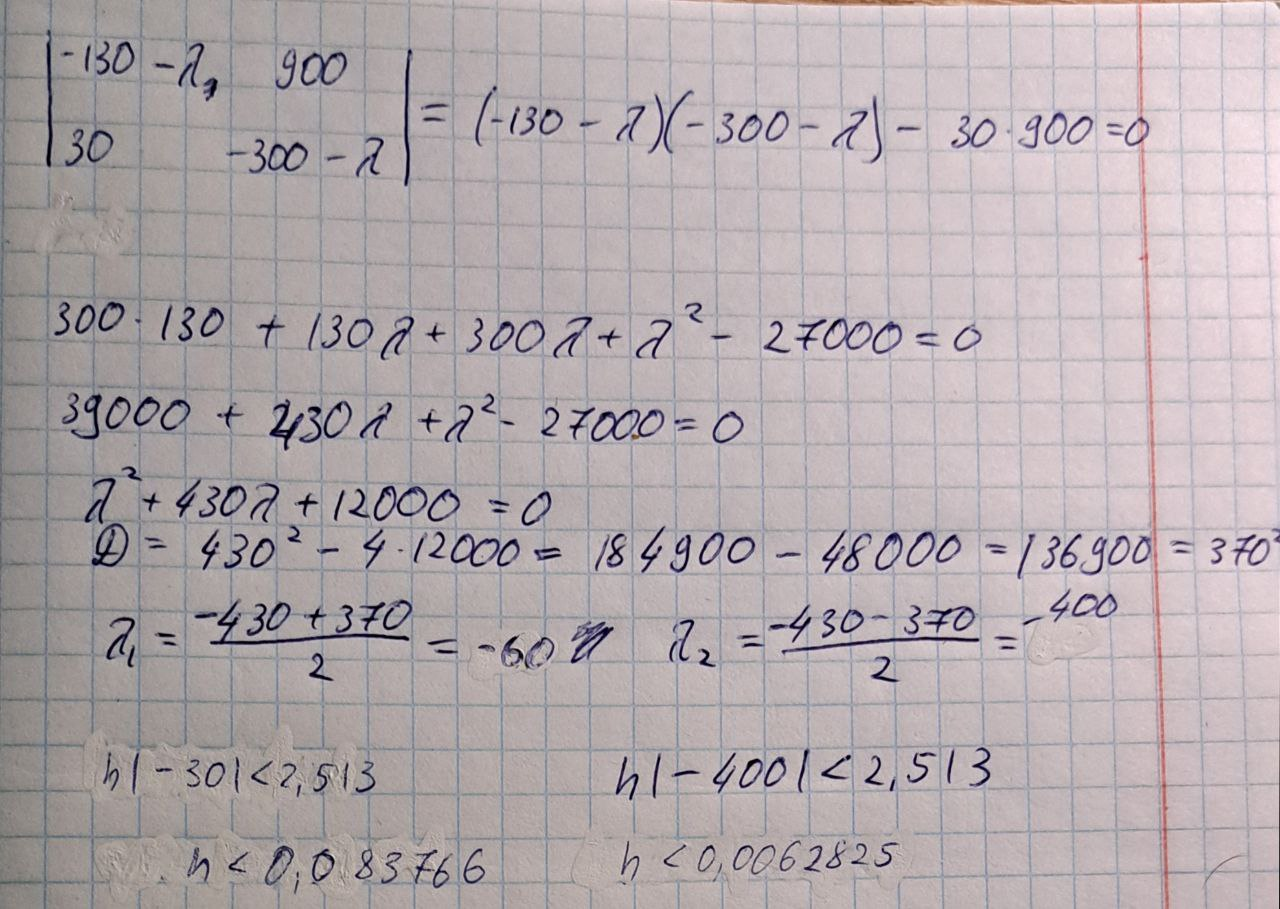 |-130 - λ, 900|
|30 -300 - λ| = (-130 - λ)(-300 - λ) - 30·900 = 0
300·130 + 130λ + 300λ + λ² - 27000 = 0
39000 + 430λ + λ² - 27000 = 0
λ² + 430λ + 12000 = 0
D = 430² - 4·12000 = 184900 - 48000 = 136900 = 370²
λ₁ = (-430 + 370)/2 = -60 λ₂ = (-430 - 370)/2 = -400
h|-30| < 2,513 h|-400| < 2,513
h < 0,083766 h < 0,0062825